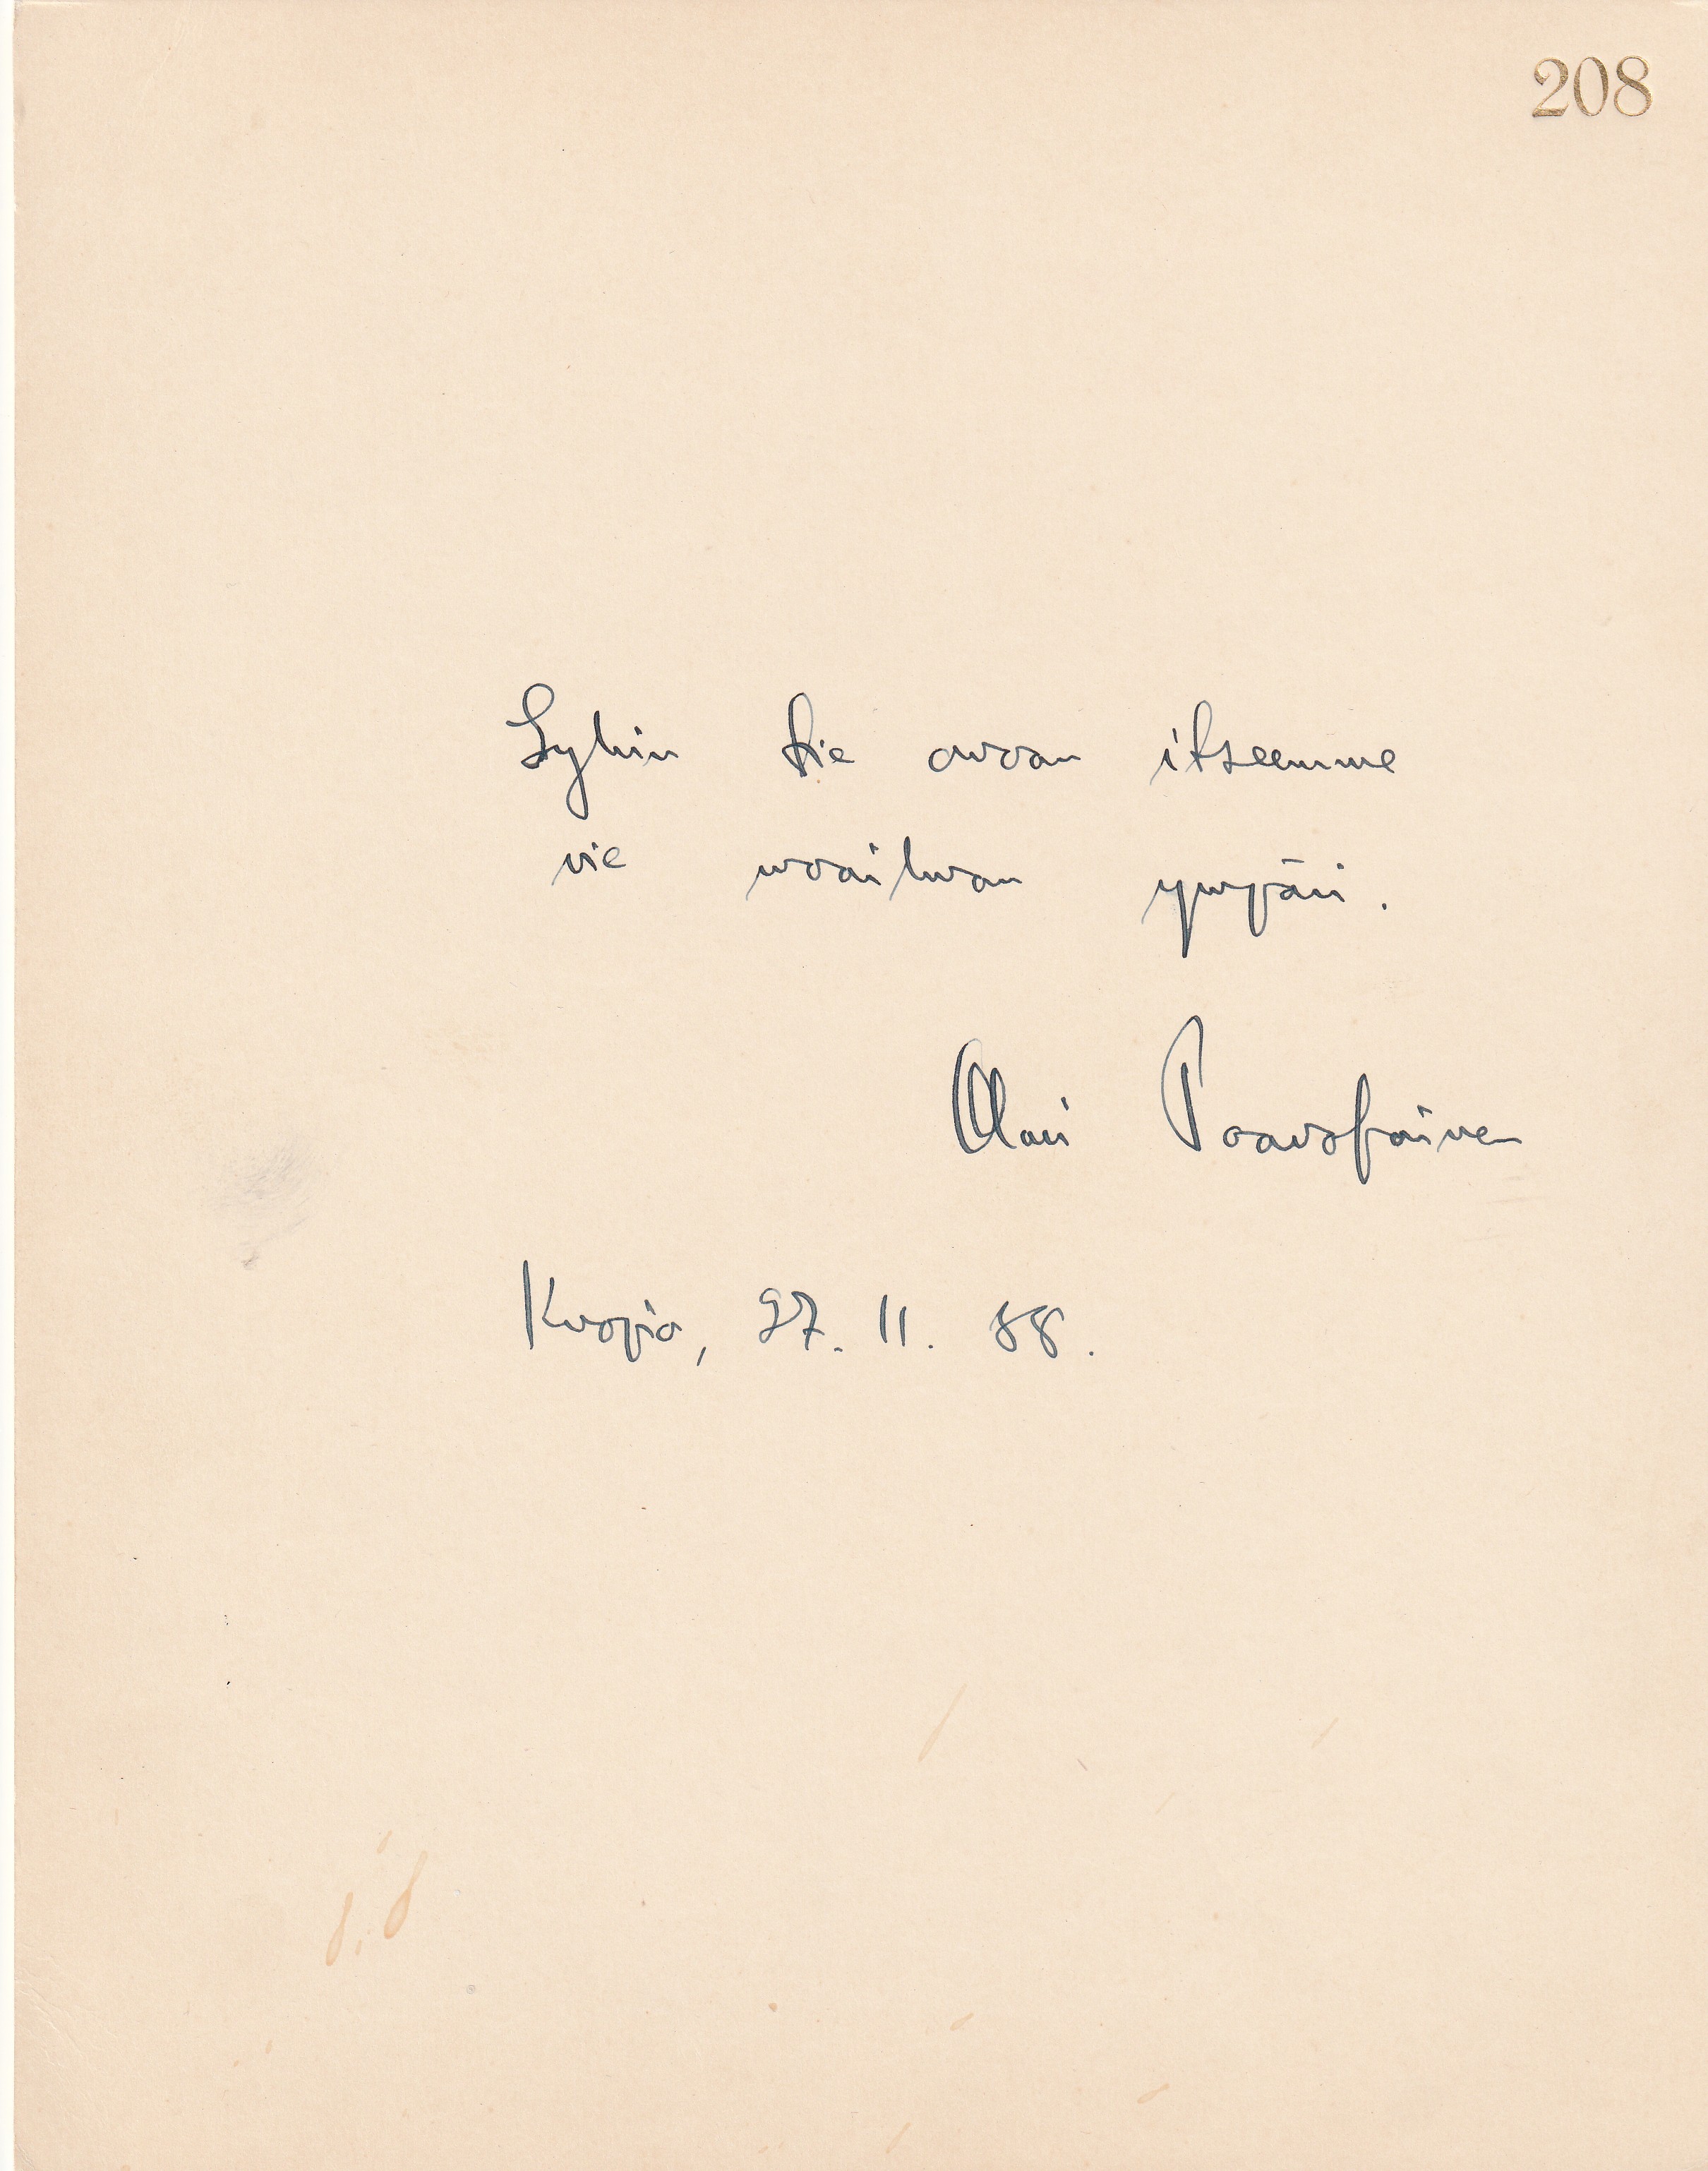 208
Lyhin tie omaan itseemme
vie maailman ympäri.
Olavi Paavolainen
Kuopio, 27. 11.